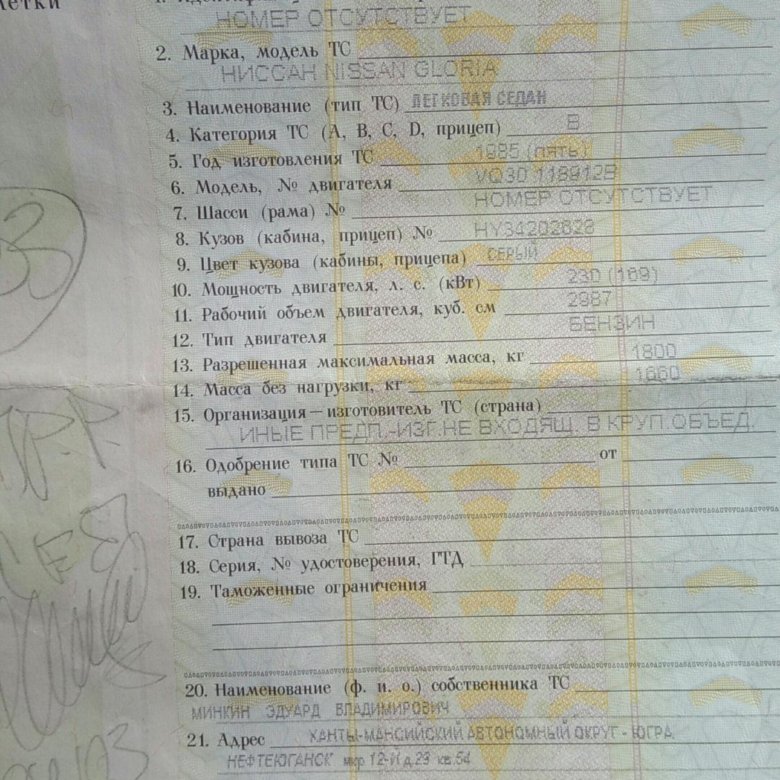 НОМЕР ОТСУТСТВУЕТ
2. Марка, модель ТС
НИССАН NISSAN GLORIA
3. Наименование (тип ТС) ЛЕГКОВАЯ СЕДАН
4. Категория ТС (А, В, С, D, прицеп) B
5. Год изготовления ТС 1985 (пять)
6. Модель, № двигателя VQ30 118912B
7. Шасси (рама) № НОМЕР ОТСУТСТВУЕТ
8. Кузов (кабина, прицеп) № HY34202628
9. Цвет кузова (кабины, прицепа) СЕРЫЙ
10. Мощность двигателя, л. с. (кВт) 230 (169)
11. Рабочий объем двигателя, куб. см 2987
12. Тип двигателя БЕНЗИН
13. Разрешенная максимальная масса, кг 1800
14. Масса без нагрузки, кг 1660
15. Организация—изготовитель ТС (страна)
ИНЫЕ ПРЕДП.-ИЗГ.НЕ ВХОДЯЩ. В КРУП.ОБЪЕД.
16. Одобрение типа ТС № от
выдано
17. Страна вывоза ТС
18. Серия, № удостоверения, ГТД
19. Таможенные ограничения
20. Наименование (ф. и. о.) собственника ТС
МИНКИН ЭДУАРД ВЛАДИМИРОВИЧ
21. Адрес ХАНТЫ-МАНСИЙСКИЙ АВТОНОМНЫЙ ОКРУГ - ЮГРА,
НЕФТЕЮГАНСК мкр 12-й д.23 кв.54